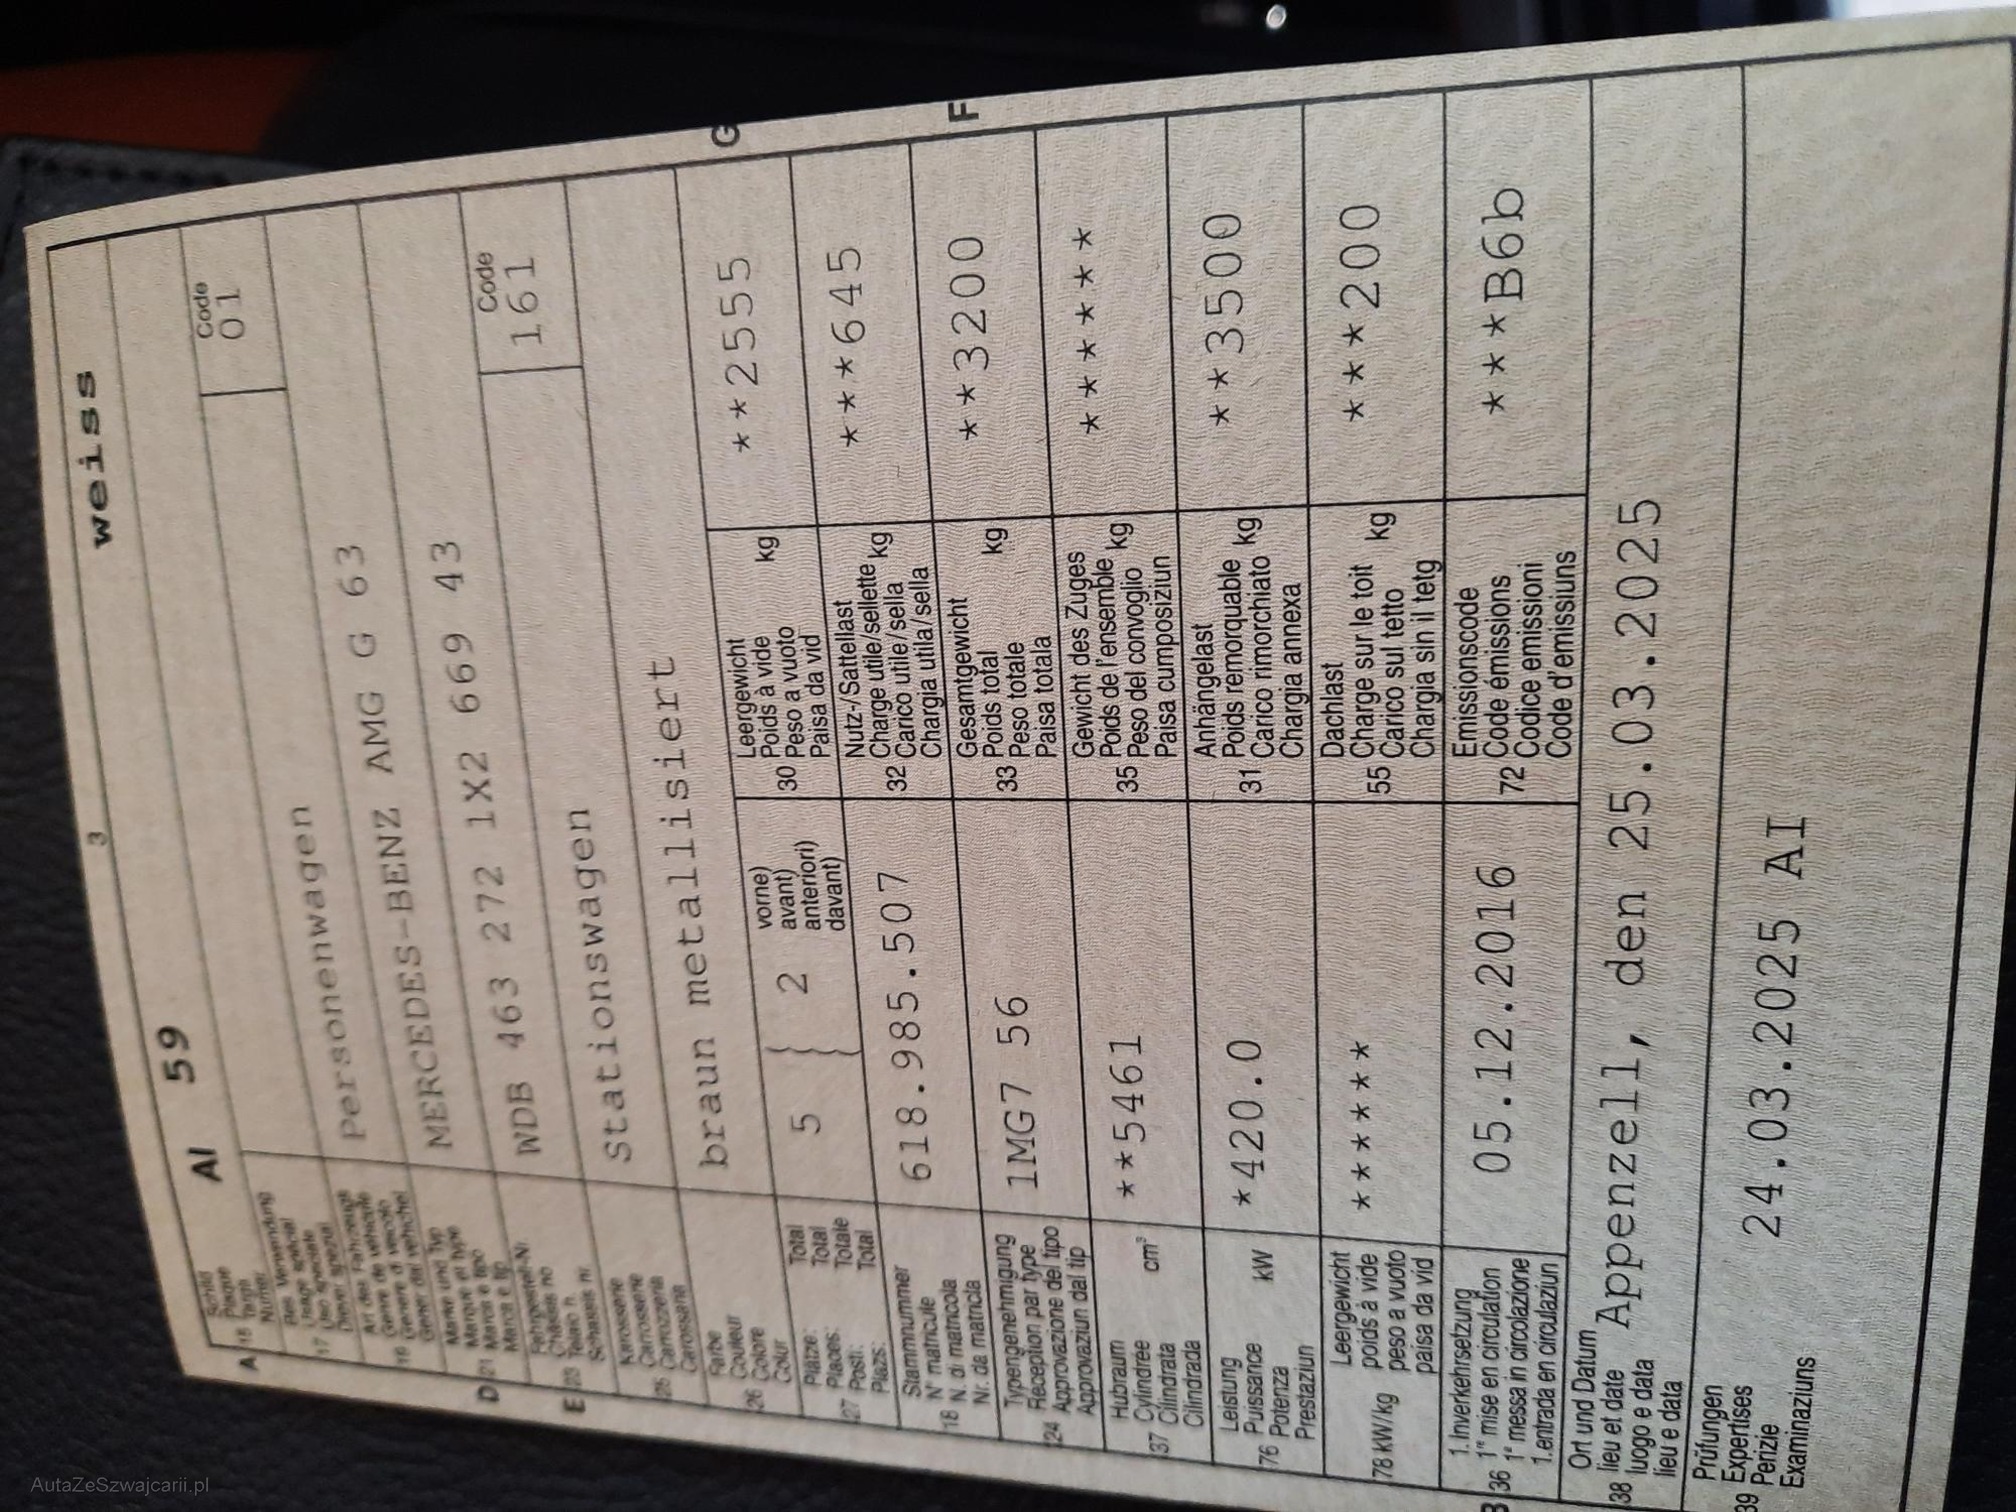 3
weiss
AI 59
A 15
Schild
Plaque
Targa
Numer
Code
01
17
Bes. Verwendung
Usage spécial
Uso speciale
Diever spezial
19
Art des Fahrzeugs
Genre de véhicule
Genere di veicolo
Gener dal vehichel
Personenwagen
D 21
Marke und Typ
Marque et type
Marca e tipo
Marca e tip
MERCEDES-BENZ AMG G 63
E 23
Fahrgestell-Nr.
Châssis no
Telaio n.
Schassis nr.
WDB 463 272 1X2 669 43
Code
161
25
Karosserie
Carrosserie
Carrozzeria
Carossaria
Stationswagen
26
Farbe
Couleur
Colore
Colur
braun metallisiert
27
Plätze: Total
Places: Total
Posti: Totale
Plazs: Total
5
2
vorne)
avant)
anteriori)
davant)
G
30
Leergewicht
Poids à vide
Peso a vuoto
Paisa da vid
kg
**2555
18
Stammnummer
N° matricule
N. di matricola
Nr. da matricla
618.985.507
32
Nutz-/Sattellast
Charge utile/sellette
Carico utile/sella
Chargia utila/sella
kg
***645
24
Typengenehmigung
Réception par type
Approvazione del tipo
Approvaziun dal tip
1MG7 56
F
33
Gesamtgewicht
Poids total
Peso totale
Paisa totala
kg
**3200
37
Hubraum
Cylindrée
Cilindrata
Cilindrada
cm³
**5461
35
Gewicht des Zuges
Poids de l'ensemble
Peso del convoglio
Paisa cumposiziun
kg
******
76
Leistung
Puissance
Potenza
Prestaziun
kW
*420.0
31
Anhängelast
Poids remorquable
Carico rimorchiato
Chargia annexa
kg
**3500
78 kW/kg
Leergewicht
poids à vide
peso a vuoto
paisa da vid
******
55
Dachlast
Charge sur le toit
Carico sul tetto
Chargia sin il tetg
kg
***200
B 36
1. Inverkehrsetzung
1re mise en circulation
1a messa in circolazione
1. entrada en circulaziun
05.12.2016
72
Emissionscode
Code émissions
Codice emissioni
Code d'emissiuns
***B6b
38
Ort und Datum
lieu et date
luogo e data
lieu e data
Appenzell, den 25.03.2025
39
Prüfungen
Expertises
Perizie
Examinaziuns
24.03.2025 AI
AutaZeSzwajcarii.pl